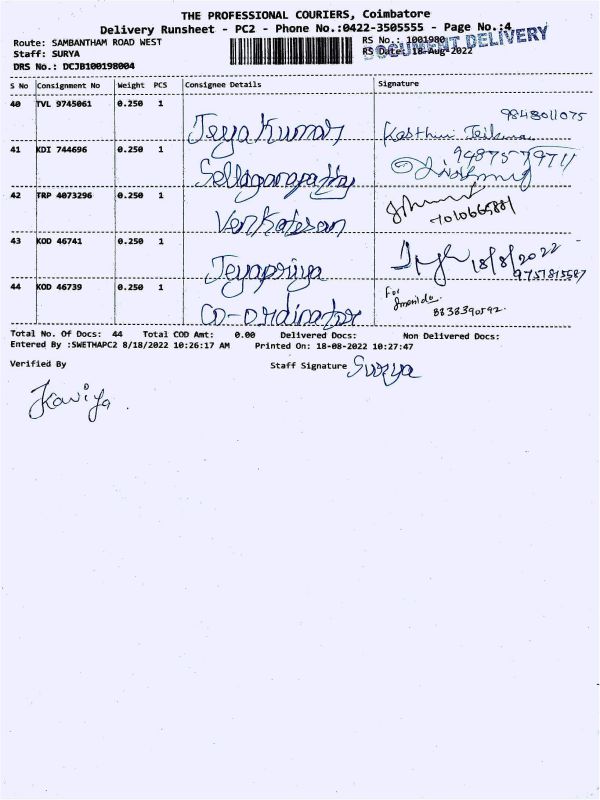 THE PROFESSIONAL COURIERS, Coimbatore
Delivery Runsheet - PC2 - Phone No.:0422-3505555 - Page No.:4
Route: SAMBANTHAM ROAD WEST RS No.: 1001980
Staff: SURYA RS Date: 18-Aug-2022
DOCUMENT DELIVERY
DRS No.: DCJB100198004
S No Consignment No Weight PCS Consignee Details Signature
40 TVL 9745061 0.250 1 Jeyakumar 9848011075
41 KDI 744696 0.250 1
42 TRP 4073296 0.250 1 Venkatesan
43 KOD 46741 0.250 1 Jeyapriya 18/8/2022
44 KOD 46739 0.250 1 Co-ordinator For
8838390592.
Total No. Of Docs: 44 Total COD Amt: 0.00 Delivered Docs: Non Delivered Docs:
Entered By :SWETHAPC2 8/18/2022 10:26:17 AM Printed On: 18-08-2022 10:27:47
Verified By Staff Signature Surya
Kaviya .